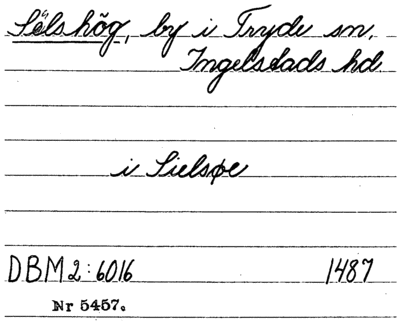 Sölshög, by i Tryde sn,
Ingelstads hd.
i Sielsøe
DBM 2:6016 1487
Nr 5457.